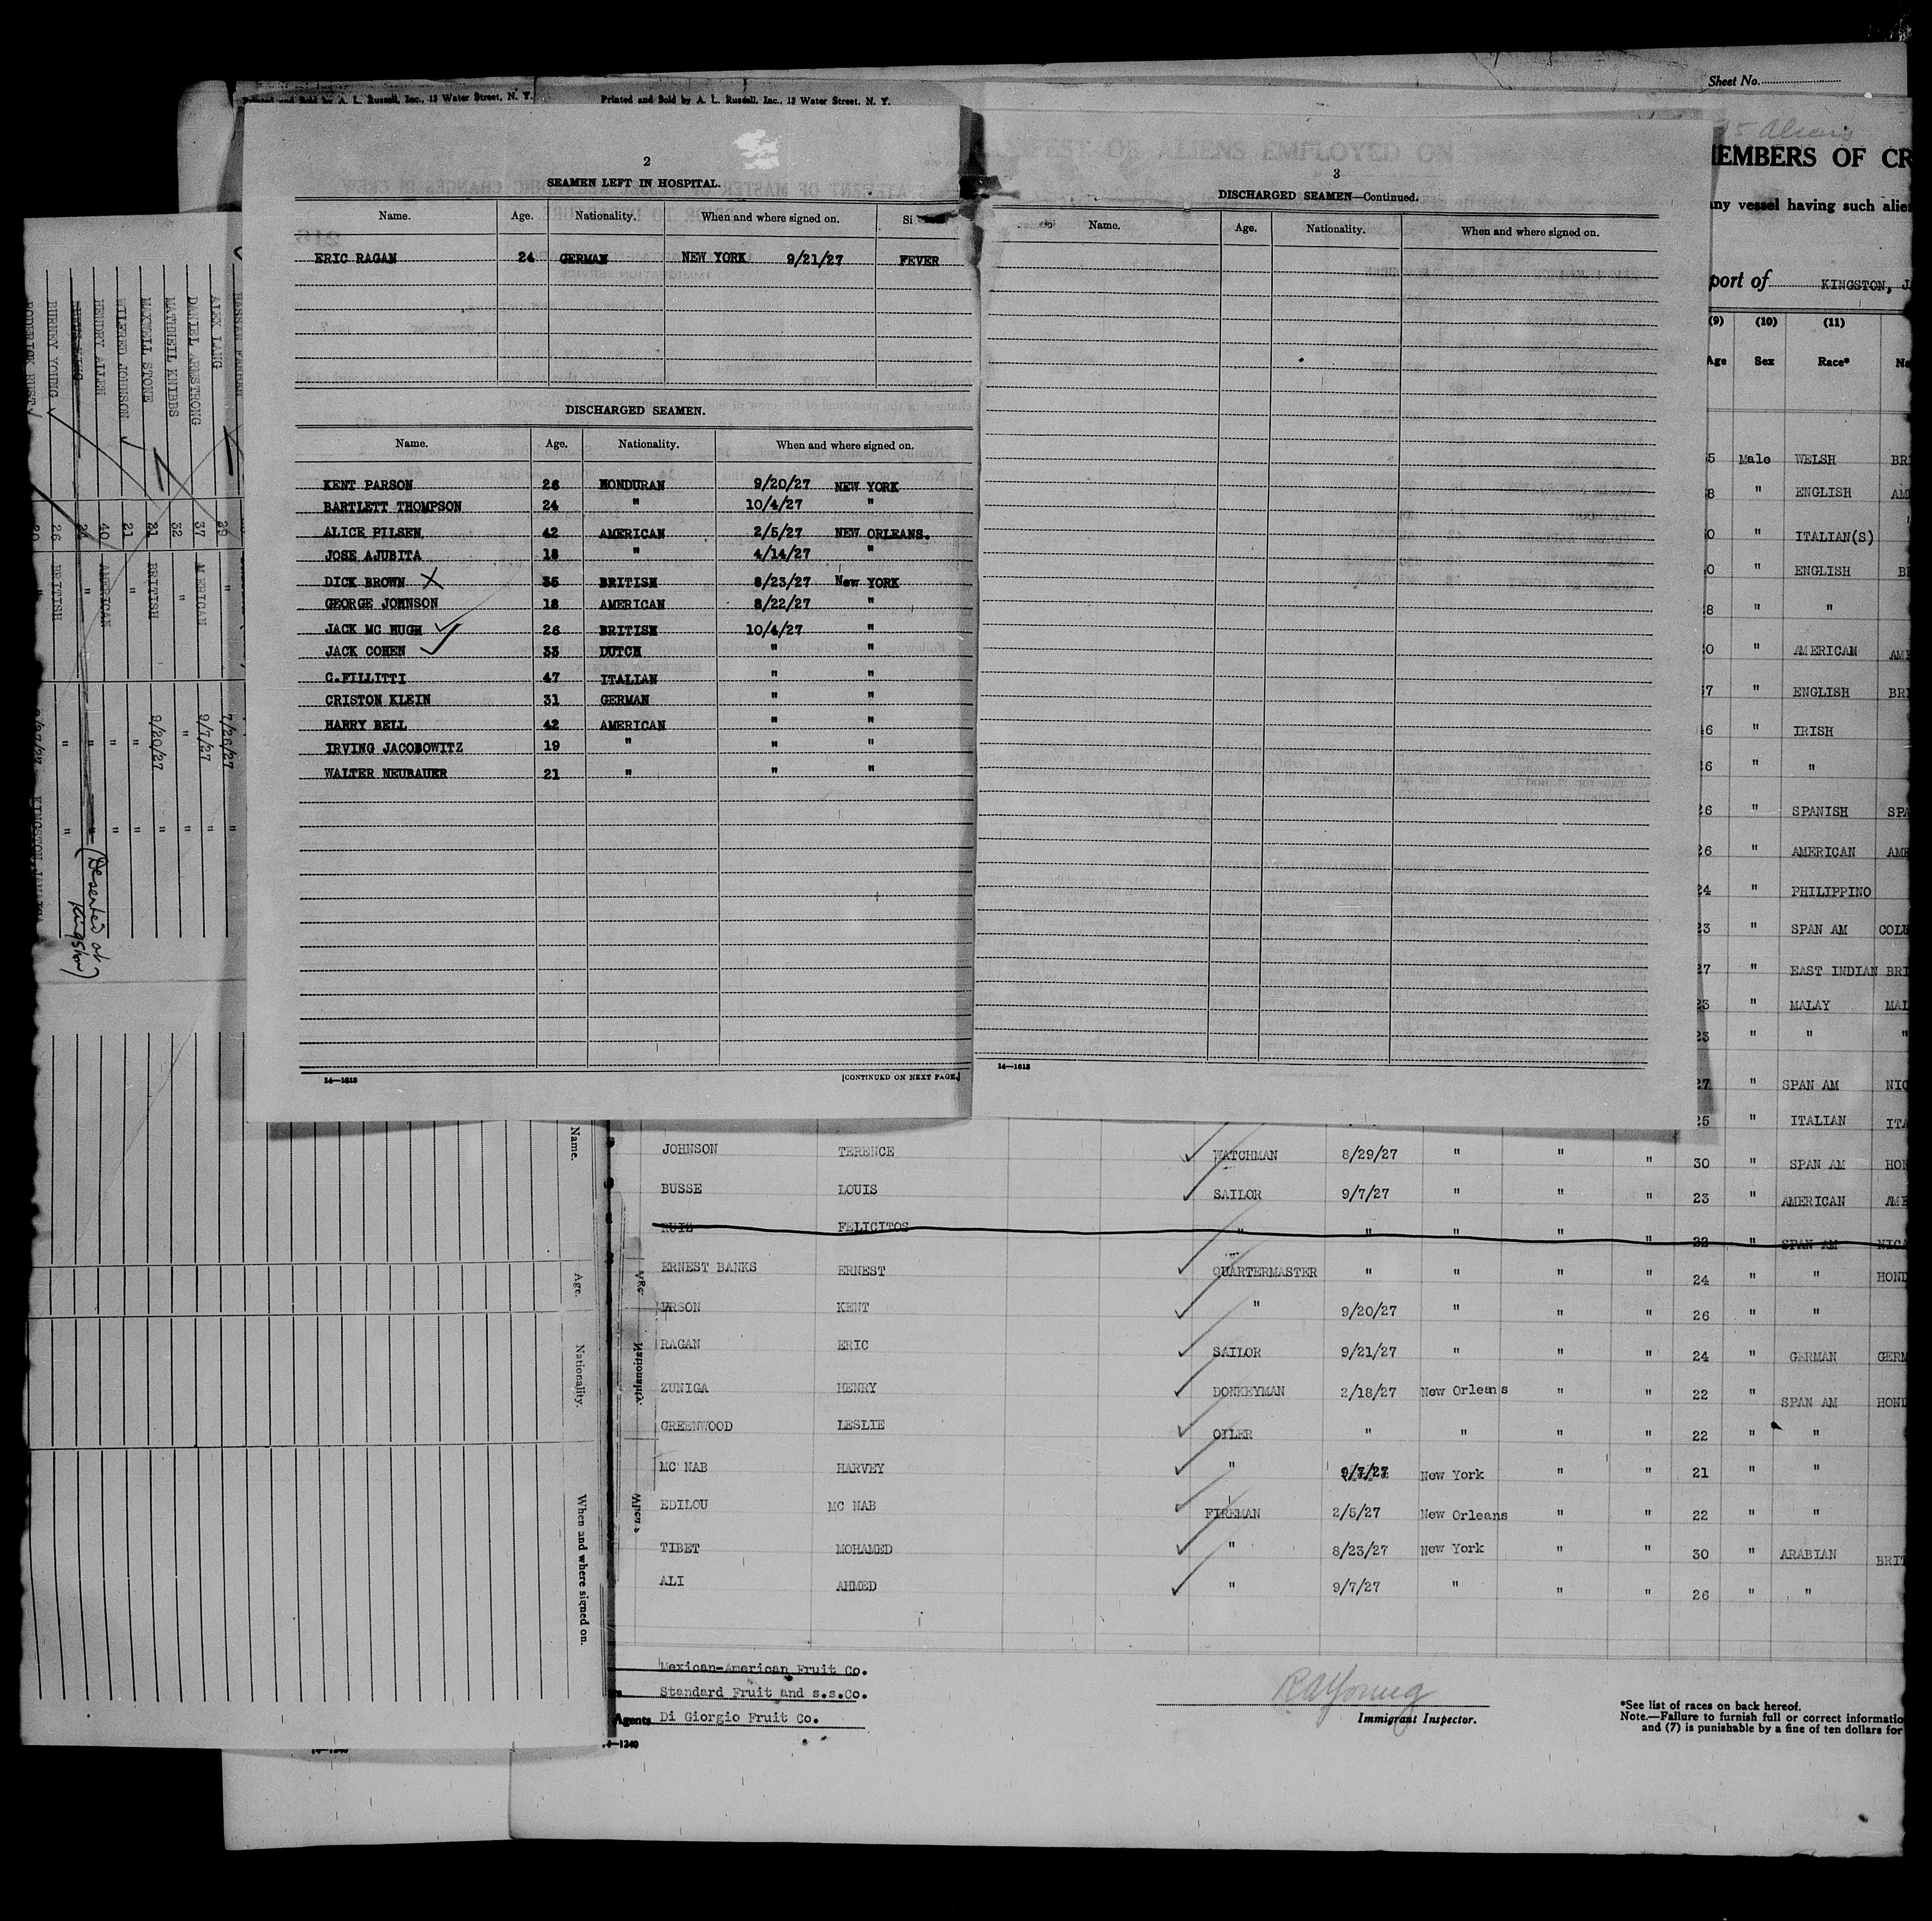 Sheet No.
Printed and Sold by A. L. Russell, Inc., 13 Water Street, N. Y.
Printed and Sold by A. L. Russell, Inc., 13 Water Street, N. Y.
2
SEAMEN LEFT IN HOSPITAL.
Name. Age. Nationality. When and where signed on. Si
ERIC RAGAN 24 GERMAN NEW YORK 9/21/27 FEVER
DISCHARGED SEAMEN.
Name. Age. Nationality. When and where signed on.
KENT PARSON 26 HONDURAN 9/20/27 NEW YORK
BARTLETT THOMPSON 24 " 10/4/27 "
ALICE PILSEN 42 AMERICAN 2/5/27 NEW ORLEANS.
JOSE AJUBITA 18 " 4/14/27 "
DICK BROWN X 35 BRITISH 8/23/27 New YORK
GEORGE JOHNSON 18 AMERICAN 8/22/27 "
JACK MC HUGH ✓ 26 BRITISH 10/4/27 "
JACK COHEN ✓ 33 DUTCH " "
C.FILLITTI 47 ITALIAN " "
CRISTON KLEIN 31 GERMAN " "
HARRY BELL 42 AMERICAN " "
IRVING JACOBOWITZ 19 " " "
WALTER NEUBAUER 21 " " "
14—1613 [CONTINUED ON NEXT PAGE.]
3
DISCHARGED SEAMEN—Continued.
Name. Age. Nationality. When and where signed on.
14—1613
95 Aliens
EMBERS OF CR
any vessel having such alie
port of KINGSTON, J
(9) (10) (11)
Age Sex Race* Na
5 Male WELSH BRI
8 " ENGLISH AM
0 " ITALIAN(S)
0 " ENGLISH B
8 " "
0 " AMERICAN AME
7 " ENGLISH BRI
6 " IRISH
26 " "
26 " SPANISH SPA
26 " AMERICAN AME
24 " PHILIPPINO
23 " SPAN AM COL
27 " EAST INDIAN BRI
23 " MALAY MAL
23 " " "
27 " SPAN AM NIC
25 " ITALIAN ITA
JOHNSON TERENCE ✓ WATCHMAN 8/29/27 " " " 30 " SPAN AM HON
BUSSE LOUIS ✓ SAILOR 9/7/27 " " " 23 " AMERICAN AME
RUIZ FELICITOS " " " " " 22 " SPAN AM NICA
ERNEST BANKS ERNEST ✓ QUARTERMASTER " " " " 24 " " HOND
ARSON KENT ✓ " 9/20/27 " " " 26 " "
RAGAN ERIC ✓ SAILOR 9/21/27 " " " 24 " GERMAN GERM
ZUNIGA HENRY ✓ DONKEYMAN 2/18/27 New Orleans " " 22 " SPAN AM HOND
GREENWOOD LESLIE ✓ OILER " " " " 22 " "
MC NAB HARVEY ✓ " 9/7/27 New York " " 21 " "
EDILOU MC NAB ✓ FIREMAN 2/5/27 New Orleans " " 22 " "
TIBET MOHAMED ✓ " 8/23/27 New York " " 30 " ARABIAN BRIT
ALI AHMED ✓ " 9/7/27 " " " 26 " "
Mexican-American Fruit Co.
Standard Fruit and s.s.Co.
Agents Di Giorgio Fruit Co.
RAYoung
Immigrant Inspector.
*See list of races on back hereof.
Note.—Failure to furnish full or correct informatio
and (7) is punishable by a fine of ten dollars for
14—1240
ALEX LANG 29 " 7/26/27 "
DANIEL ARMSTRONG 37 AMERICAN 9/7/27 "
MATHNEIL KNIBBS 32 " " "
MAXWELL STONE 31 BRITISH 9/20/27 "
WILFRED JOHNSON 21 " " "
HENDRY ALLEN 40 AMERICAN " "
KING " " " (Deserted at Kingston)
HURREY YOUNG ✓ 26 BRITISH " "
RODERICK HUST
Name. Age. Nationality. When and where signed on.